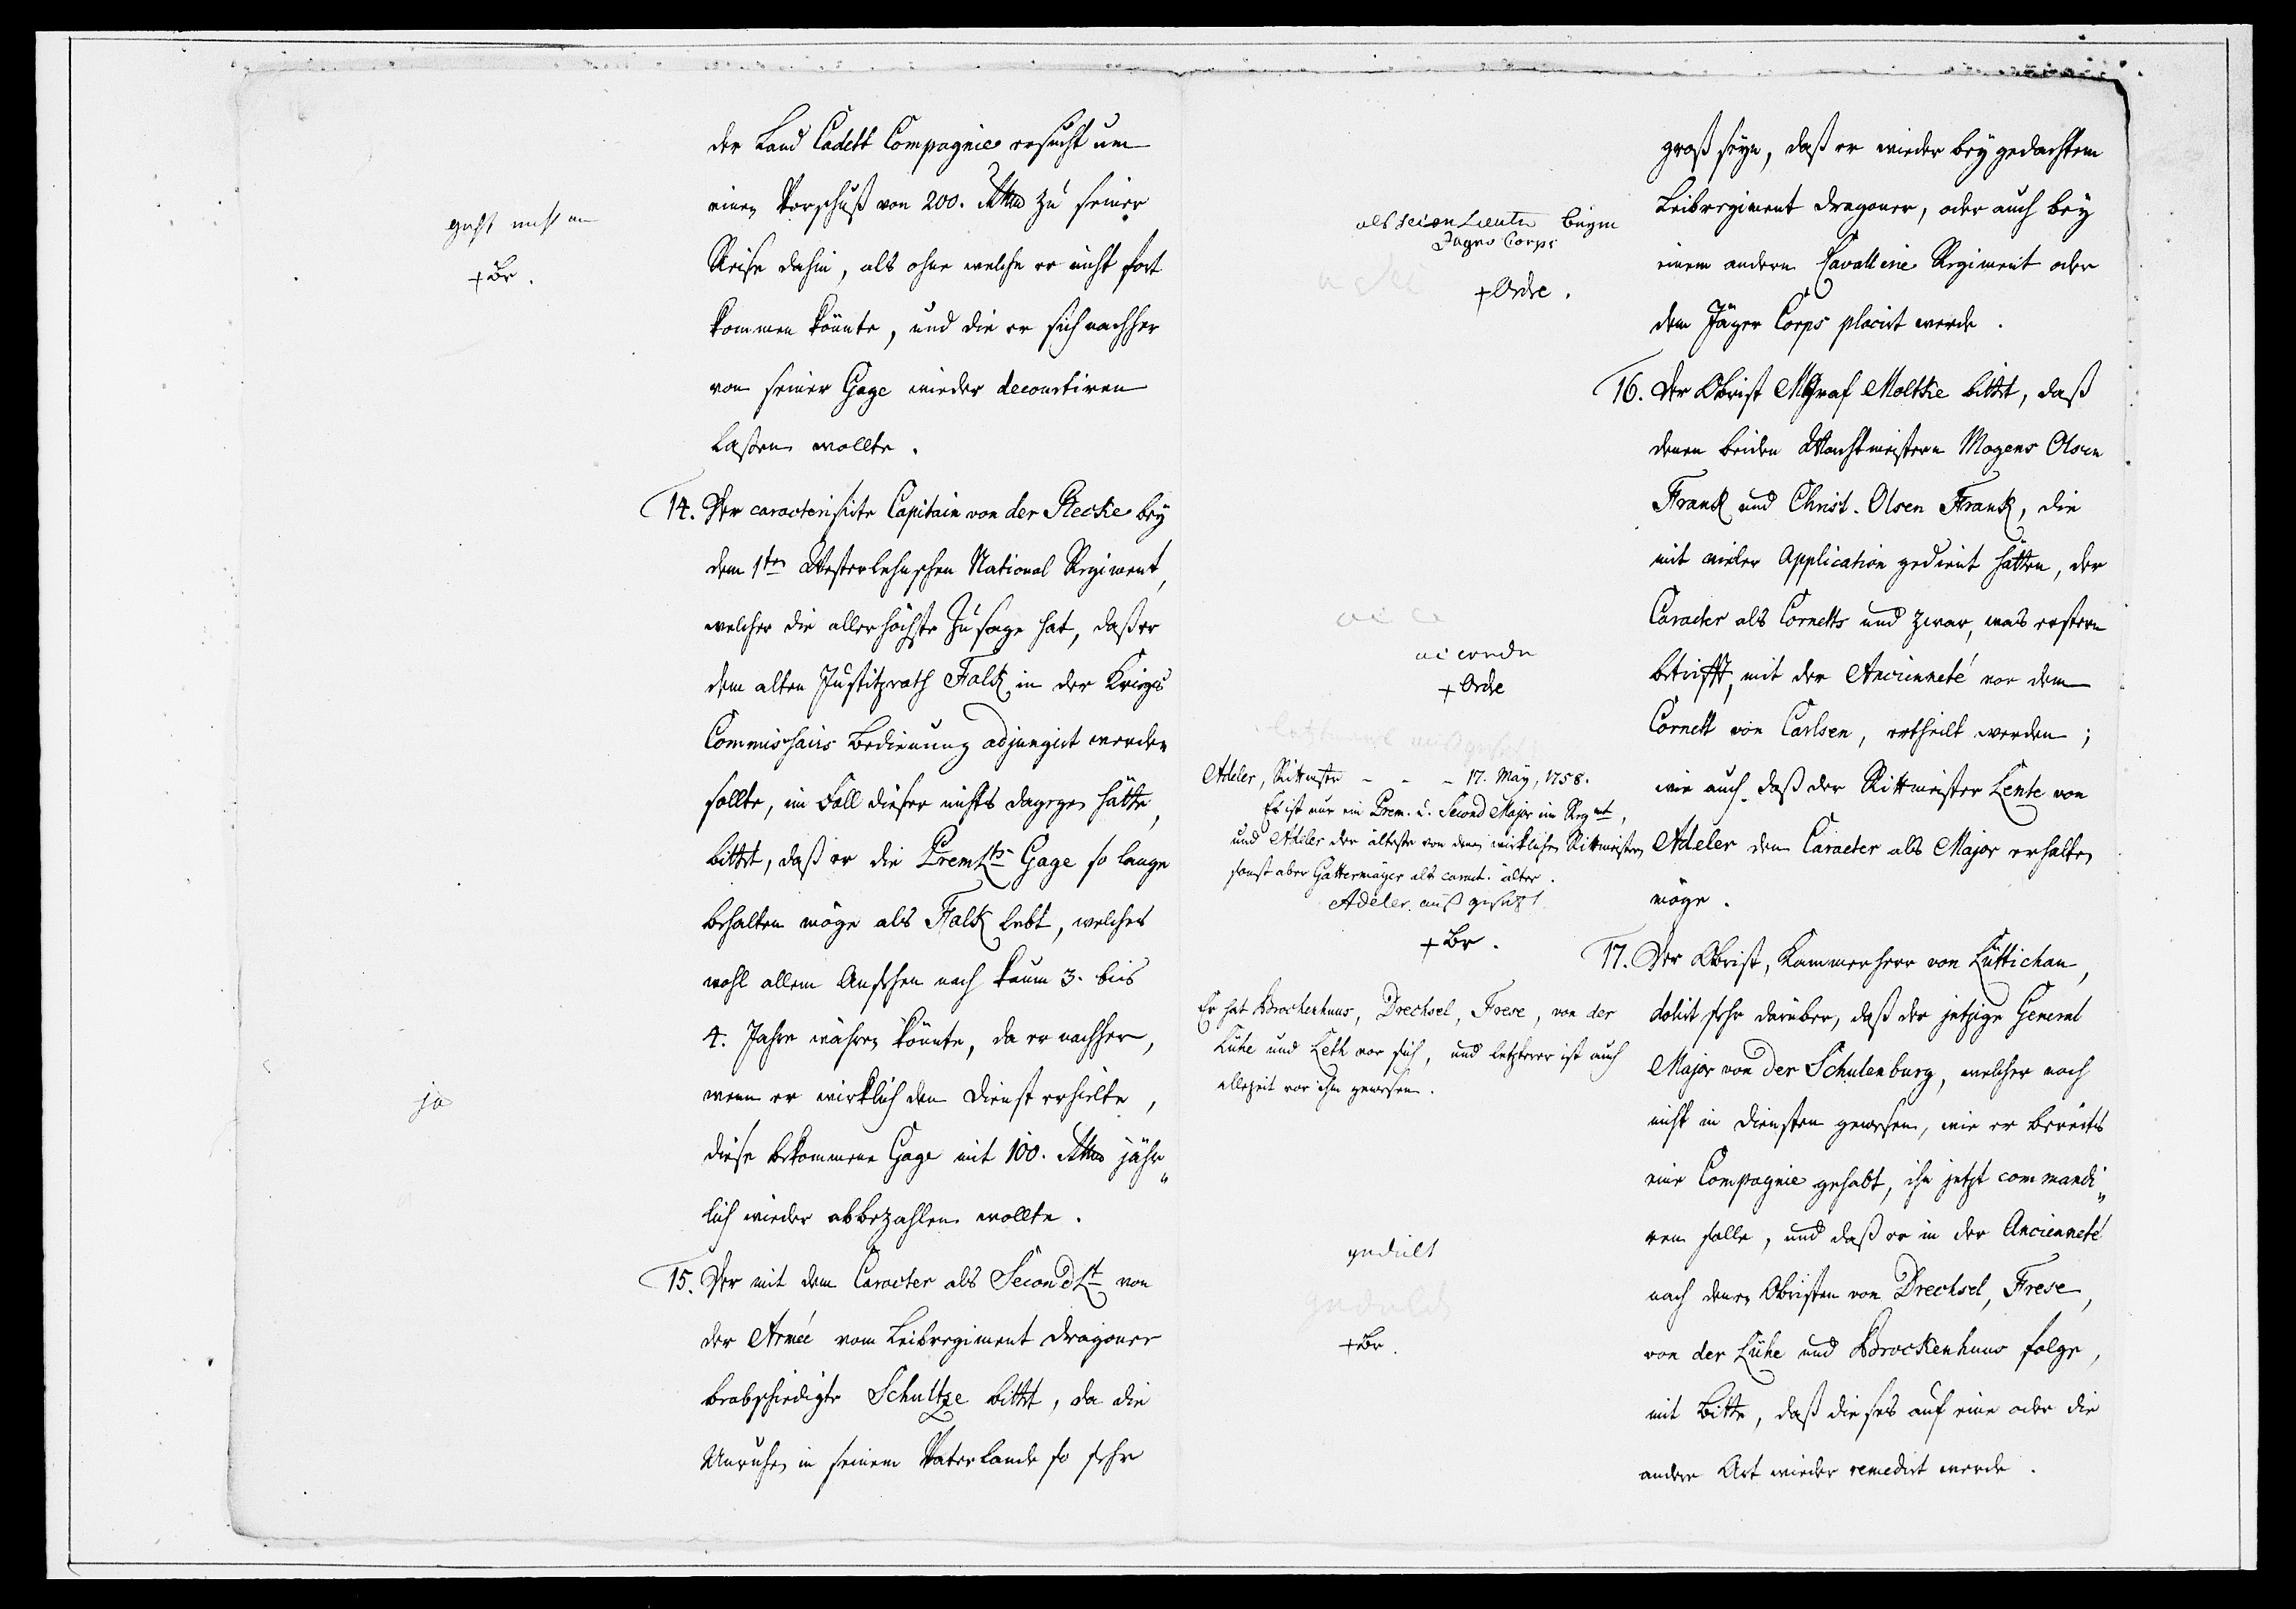 der Land Cadett Compagnie ersucht um
einen Vorschuß von 200. Rthlr zu seiner
Reise dahin, als ohne welche er nicht fort
kommen könnte, und die er sich nachher
von seiner Gage wieder decourtiren
laßen wollte.
geht nicht an
+ Br.
14. Der caracterisirte Capitain von der Recke bey
dem 1ten Westerlehnschen National Regiment,
welcher die allerhöchste Zusage hat, daß er
dem alten Justitzrath Falck in der Kriegs
Commissairs Bedienung adjungirt werden
sollte, im Fall dieser nichts dagegen hätte,
bittet, daß er die PremLts Gage so lange
behalten möge als Falck lebt, welches
wohl allem Ansehen nach kaum 3. bis
4. Jahre währen könnte, da er nachher,
wenn er wirklich den Dienst erhielte,
diese bekommene Gage mit 100. Rthlr jähr„
lich wieder abbezahlen wollte.
ja
15. Der mit dem Caracter als SecondLt von
der Armée vom Leibregiment Dragoner
beabschiedigte Schultze bittet, da die
Unruhen in seinem Vaterlande so sehr
groß seyn, daß er wieder bey gedachtem
Leibregiment Dragoner, oder auch bey
einem andern Cavallerie Regiment oder
dem Jäger Corps placirt werde.
als Lieutn beym
Jager Corps
+ Ordre.
16. Der Obrist Graf Moltke bittet, daß
denen beiden Wachtmeistern Mogens Olsen
Franck und Christ. Olsen Franck, die
mit vieler Application gedient hätten, der
Caracter als Cornetts und zwar, was erstern
betrifft, mit der Ancienneté vor dem
Cornett von Carlsen, ertheilt werden;
wie auch, daß der Rittmeister Lente von
Adeler den Caracter als Major erhalten
möge.
+ Ordre
Adeler, Rittmstr - - - 17. May, 1758.
Es ist nur ein Prem. u. Second Major im Regmt,
und Adeler der älteste von denen wirklichen Rittmeistern
sonst aber Gattermayer als caract. älter.
Adeler aus gesetzt
+ Br.
17. Der Obrist, Kammerherr von Lüttichau,
dolirt sehr darüber, daß der jetzige General
Major von der Schulenburg, welcher noch
nicht in Diensten gewesen, wie er bereits
eine Compagnie gehabt, ihn jetzt commandi„
ren solle, und daß er in der Ancienneté
nach denen Obristen von Drechsel, Frese,
von der Lühe und Brockenhuus folge,
mit Bitte, daß dieses auf eine oder die
andere Art wieder remedirt werde.
Er hat Brockenhuus, Drechsel, Frese, von der
Lühe und Leth vor sich, und letzterer ist auch
allezeit vor ihm gewesen.
gedult
gedulde
+ Br.